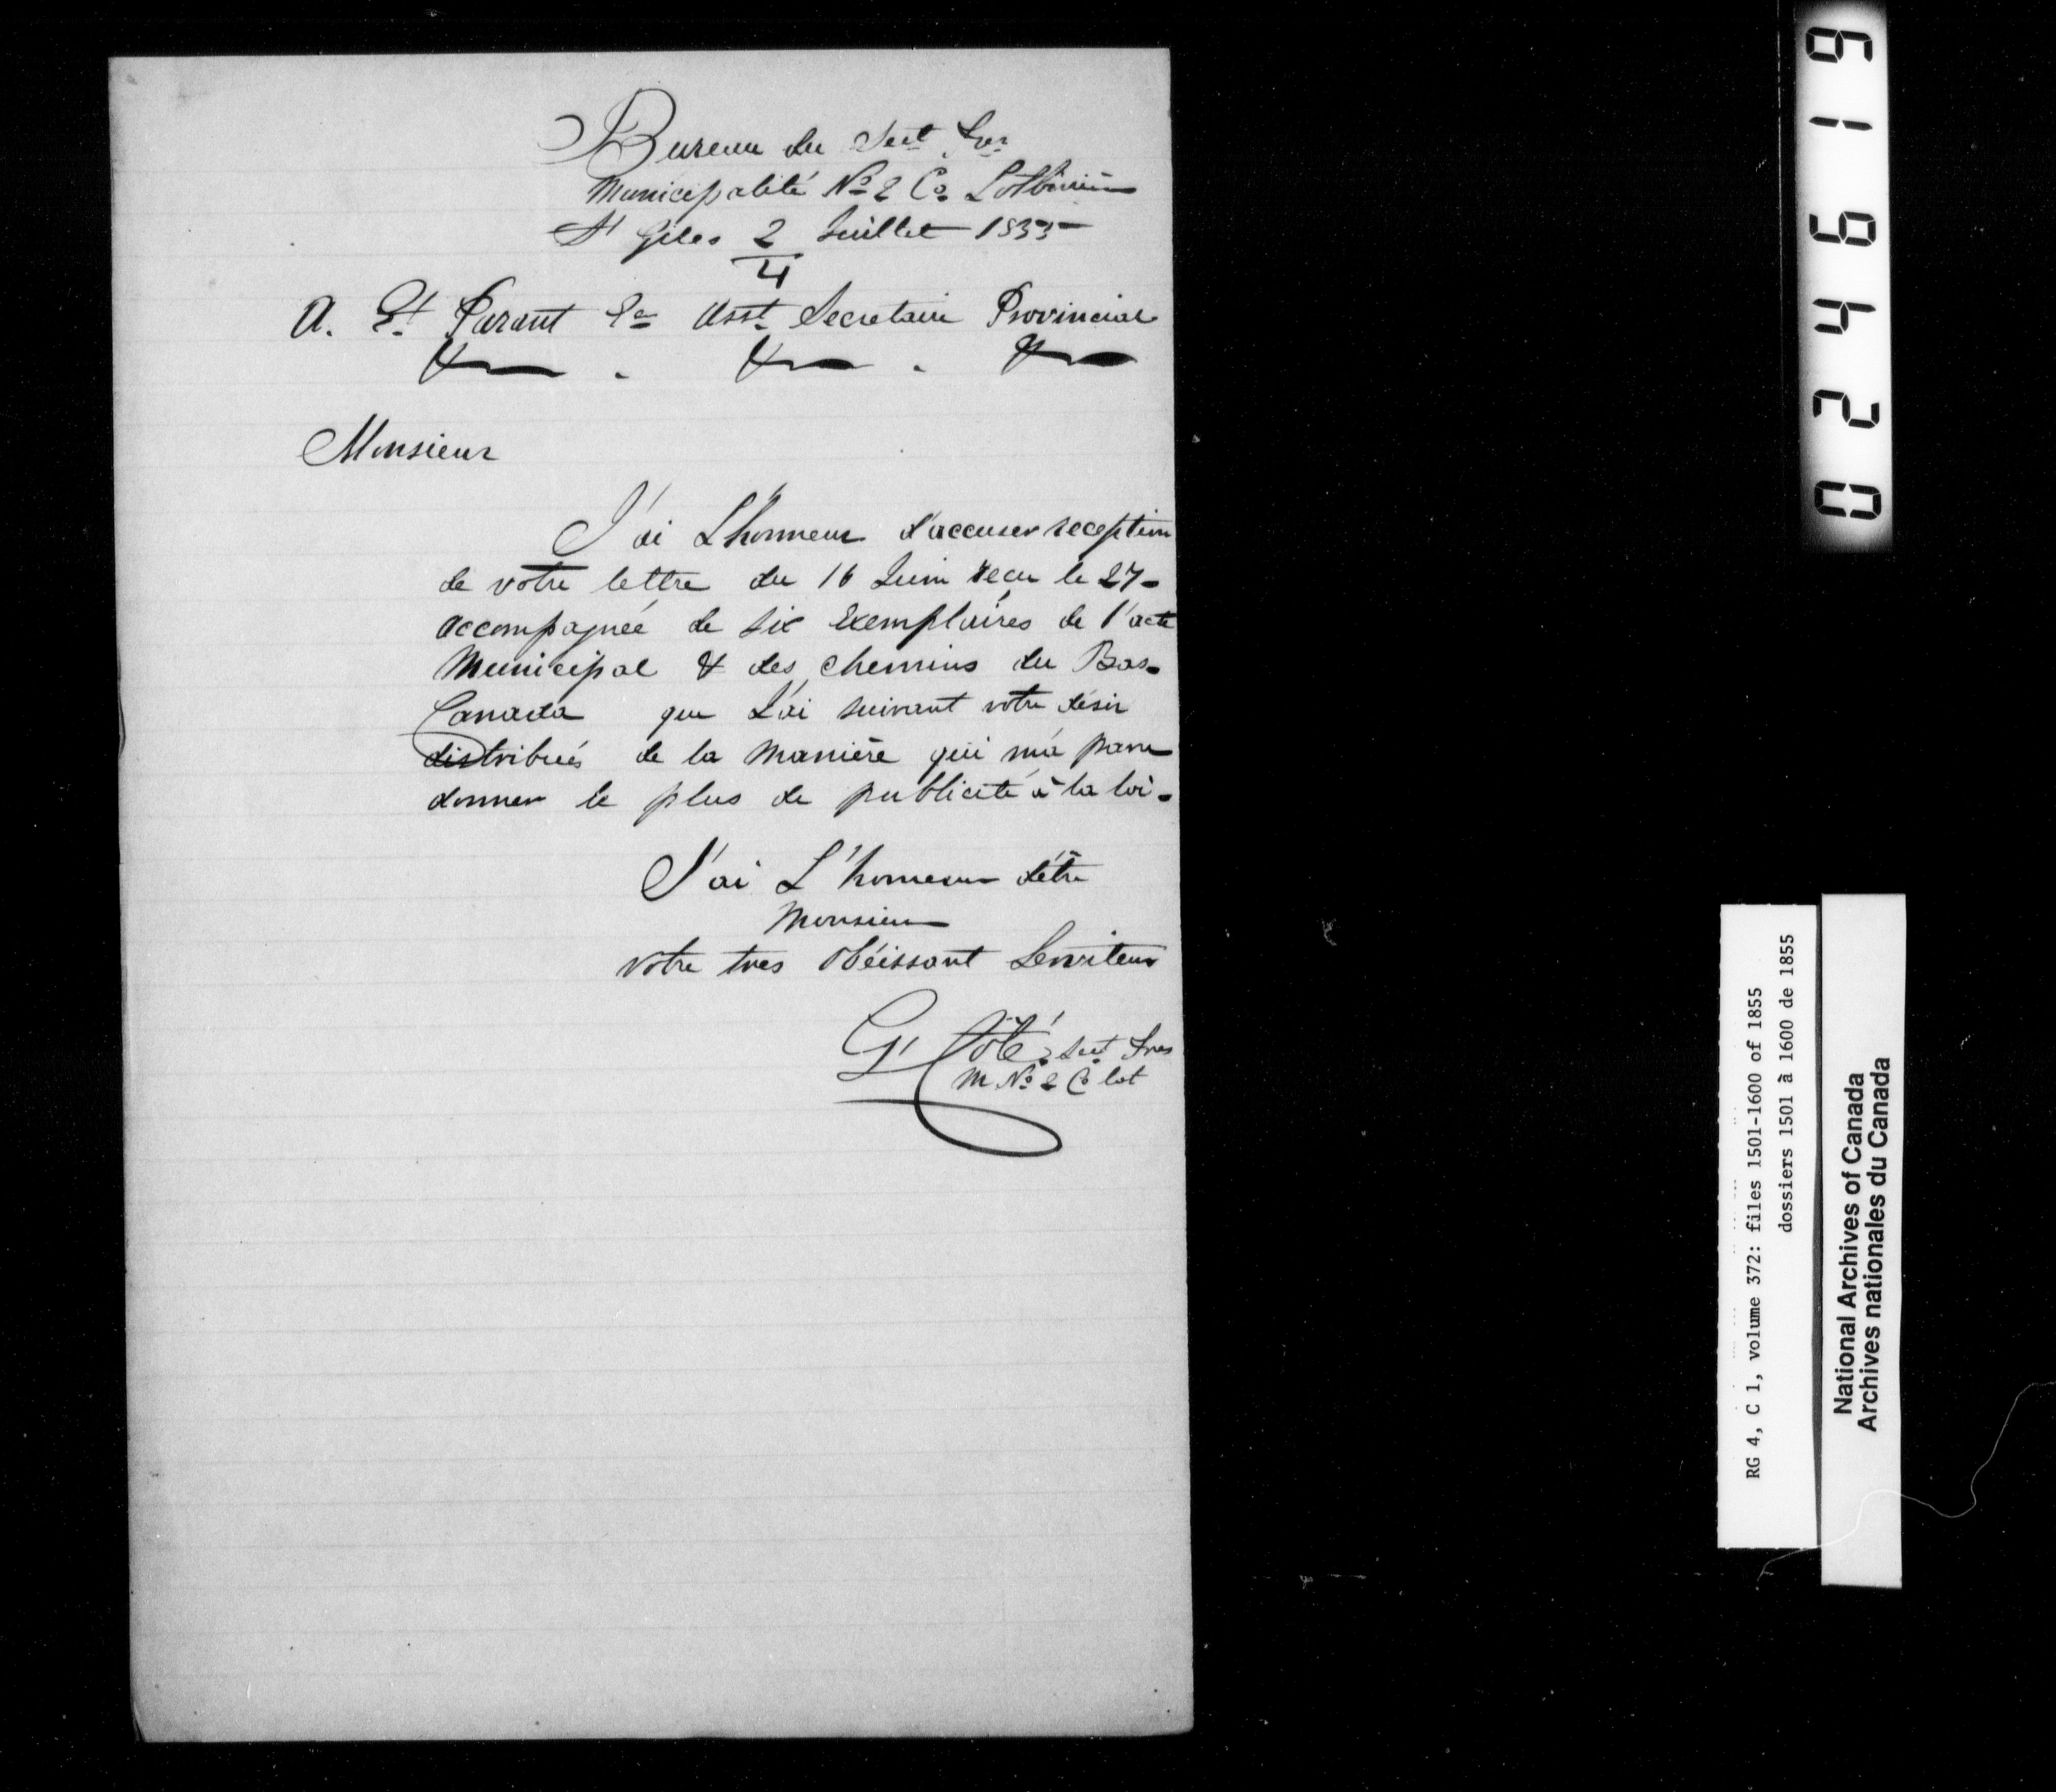 Bureau du Sect Trer
Municipalité No 2 Co. Lotbinière
St Giles 2 Juillet 1855
4
A. Et Parant Er Asst Secretaire Provincial
&— . &— . &—
Monsieur
J'ai L'honneur d'accuser reception
de votre lettre du 16 Juin reçu le 27-
accompagnée de six Exemplaires de l'acte
Municipal & des chemins du Bas-
Canada que J'ai suivant votre désir
distribués de la manière qui m'a paru
donner le plus de publicité à la loi-
J'ai L'honneur d'être
Monsieur
votre tres Obéissant Serviteur
G. Côté. Sect Tres
M No 2 Co lot
024619
RG 4, C 1, volume 372: files 1501-1600 of 1855
dossiers 1501 à 1600 de 1855
National Archives of Canada
Archives nationales du Canada